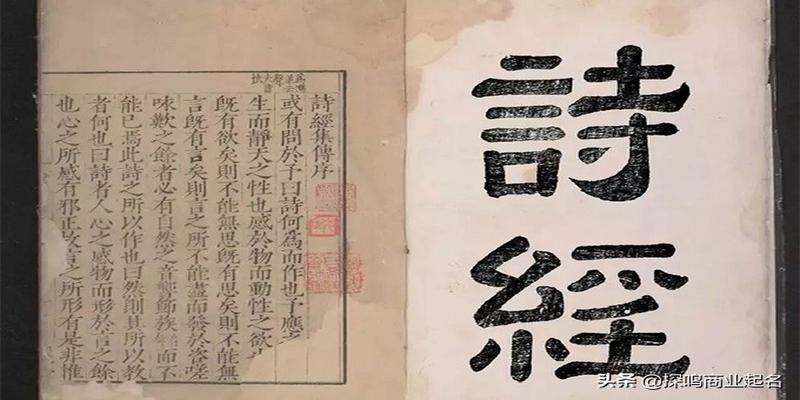 詩經
詩經集傳序
或有問於予曰詩何爲而作也予應之
生而靜天之性也感於物而動性之欲也
既有欲矣則不能無思既有思矣則不能無
言既有言矣則言之所不能盡而發於咨嗟
咏歎之餘者必有自然之音響節族而不
能已焉此詩之所以作也曰然則其所以教
者何也曰詩者人心之感物而形於言之餘
也心之所感有邪正故言之所形有是非惟
头条 @探鸣商业起名